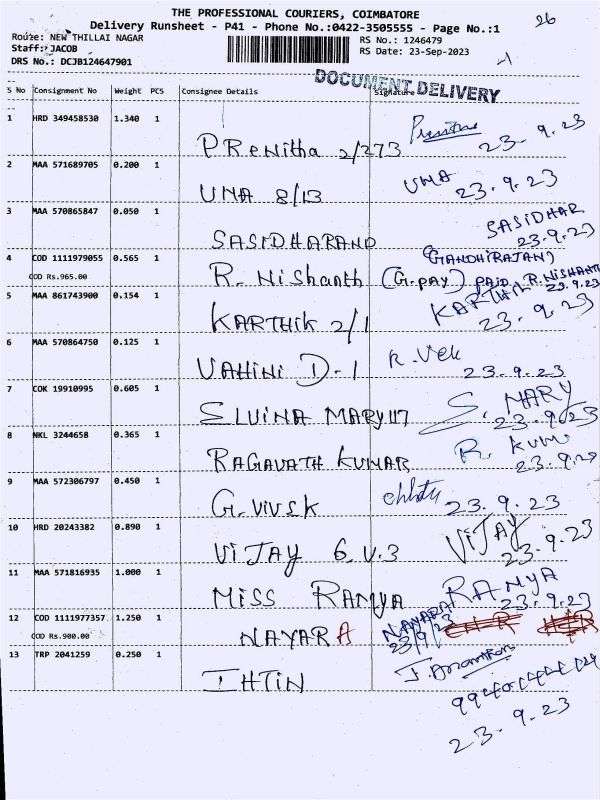 THE PROFESSIONAL COURIERS, COIMBATORE
26
Delivery Runsheet - P41 - Phone No.:0422-3505555 - Page No.:1
Route: NEW THILLAI NAGAR
RS No.: 1246479
Staff: JACOB
RS Date: 23-Sep-2023
DRS No.: DCJB124647901
DOCUMENT DELIVERY
S No Consignment No Weight PCS Consignee Details Signature
1 HRD 349458530 1.340 1
PRenitha 2/273 23.9.23
2 MAA 571689705 0.200 1
UMA 8/13 UMA 23.9.23
3 MAA 570865847 0.050 1
SASIDHARAND SASIDHAR 23.9.23
4 COD 1111979055 0.565 1
COD Rs.965.00
R. Nishanth (G.pay) PAID R.NISHANTH 23.9.23
(GANDHIRAJAN)
5 MAA 861743900 0.154 1
KARTHIK 2/1 KARTHIK 23.9.23
6 MAA 570864750 0.125 1
VAHINI D-1 23.9.23
7 COK 19910995 0.605 1
SLVINA MARY 117 S. MARY 23.9.23
8 NKL 3244658 0.365 1
RAGAVATH KUMAR R. KUM 23.9.23
9 MAA 572306797 0.450 1
G.VIVSK 23.9.23
10 HRD 20243382 0.890 1
VIJAY 6.V.3 VIJAY 23.9.23
11 MAA 571816935 1.000 1
MISS RAMYA RAMYA 23.9.23
12 COD 1111977357 1.250 1
COD Rs.900.00
NAYARA NAYARA 23/9/23
13 TRP 2041259 0.250 1
IHTIN
23.9.23